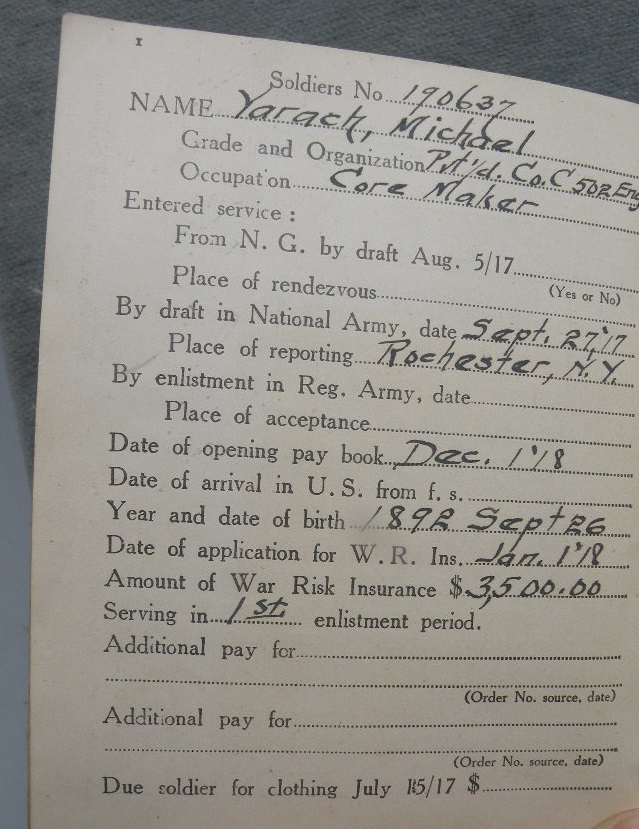 1
Soldiers No. 190637
NAME Yarach, Michael
Grade and Organization Pvt/d. Co. C 502 Eng
Occupation Core Maker
Entered service:
From N. G. by draft Aug. 5/17
(Yes or No)
Place of rendezvous
By draft in National Army, date Sept. 27, '17
Place of reporting Rochester, N.Y.
By enlistment in Reg. Army, date
Place of acceptance
Date of opening pay book Dec. 1 '18
Date of arrival in U.S. from f. s.
Year and date of birth 1892 Sept 26
Date of application for W. R. Ins. Jan. 1 '18
Amount of War Risk Insurance $3,500.00
Serving in 1st. enlistment period.
Additional pay for
(Order No. source, date)
Additional pay for
(Order No. source, date)
Due soldier for clothing July 15/17 $